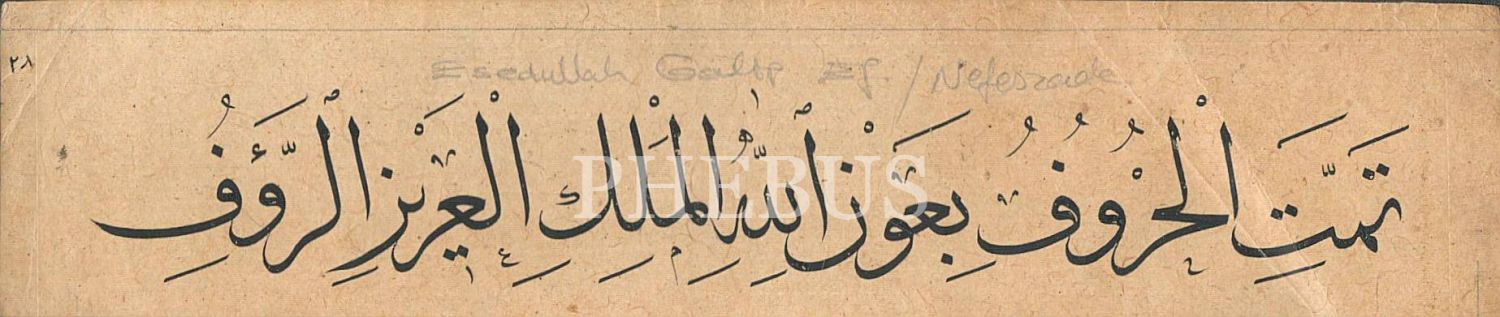 ٢٨
Esedullah Galip Ef. / Nefeszade
تمَّتِ الْحُرُوفُ بِعَوْنِ ٱللّٰهِ الْمَلِكِ الْعَزِيزِ الرَّؤُفِ
PHEBUS